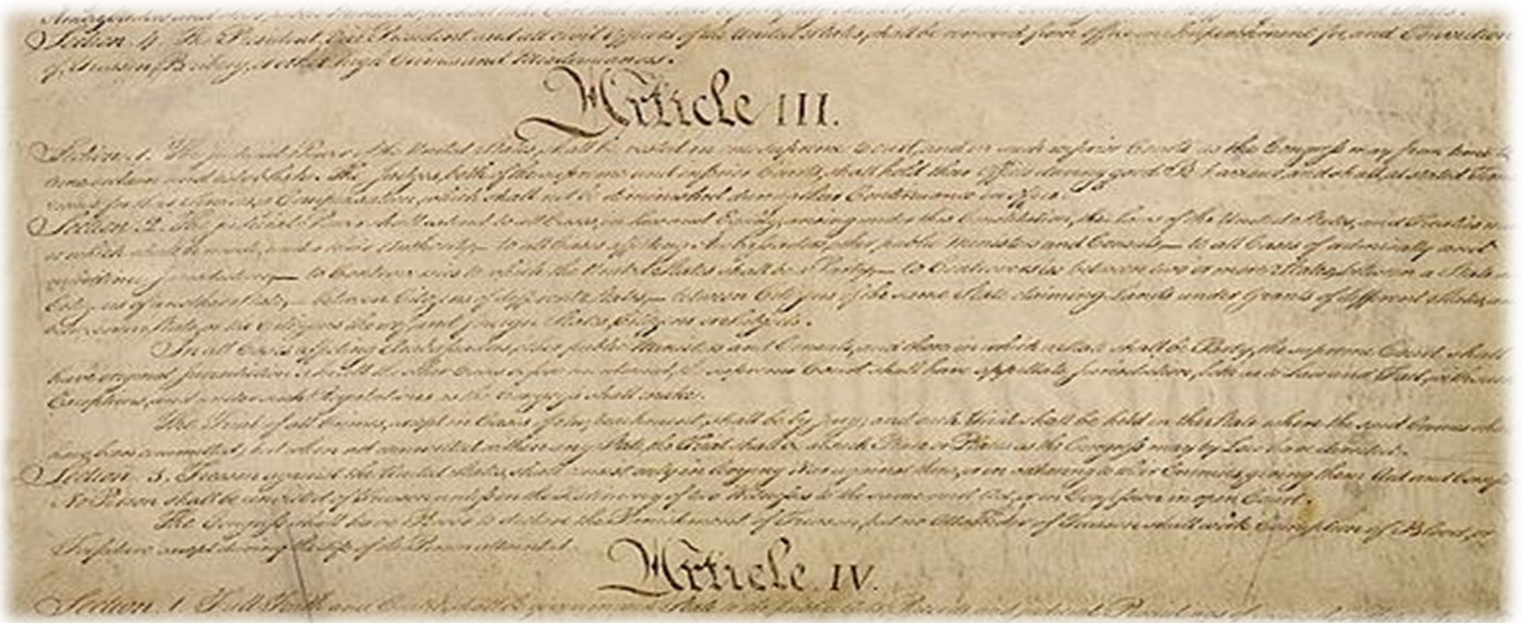 Section. 4. The President, Vice President and all civil Officers of the United States, shall be removed from Office on Impeachment for, and Conviction
of, Treason, Bribery, or other high Crimes and Misdemeanors.
Article III.
Section. 1. The judicial Power of the United States, shall be vested in one supreme Court, and in such inferior Courts as the Congress may from time to
time ordain and establish. The Judges, both of the supreme and inferior Courts, shall hold their Offices during good Behaviour, and shall, at stated Times,
receive for their Services, a Compensation, which shall not be diminished during their Continuance in Office.
Section. 2. The judicial Power shall extend to all Cases, in Law and Equity, arising under this Constitution, the Laws of the United States, and Treaties made,
or which shall be made, under their Authority;— to all Cases affecting Ambassadors, other public Ministers and Consuls;— to all Cases of admiralty and
maritime Jurisdiction;— to Controversies to which the United States shall be a Party;— to Controversies between two or more States;— between a State and
Citizens of another State,— between Citizens of different States,— between Citizens of the same State claiming Lands under Grants of different States, and
between a State, or the Citizens thereof, and foreign States, Citizens or Subjects.
In all Cases affecting Ambassadors, other public Ministers and Consuls, and those in which a State shall be Party, the supreme Court shall
have original Jurisdiction. In all the other Cases before mentioned, the supreme Court shall have appellate Jurisdiction, both as to Law and Fact, with such
Exceptions, and under such Regulations as the Congress shall make.
The Trial of all Crimes, except in Cases of Impeachment, shall be by Jury; and such Trial shall be held in the State where the said Crimes shall
have been committed; but when not committed within any State, the Trial shall be at such Place or Places as the Congress may by Law have directed.
Section. 3. Treason against the United States, shall consist only in levying War against them, or in adhering to their Enemies, giving them Aid and Comfort.
No Person shall be convicted of Treason unless on the Testimony of two Witnesses to the same overt Act, or on Confession in open Court.
The Congress shall have Power to declare the Punishment of Treason, but no Attainder of Treason shall work Corruption of Blood, or
Forfeiture except during the Life of the Person attainted.
Article. IV.
Section. 1. Full Faith and Credit shall be given in each State to the public Acts, Records, and judicial Proceedings of every other State.